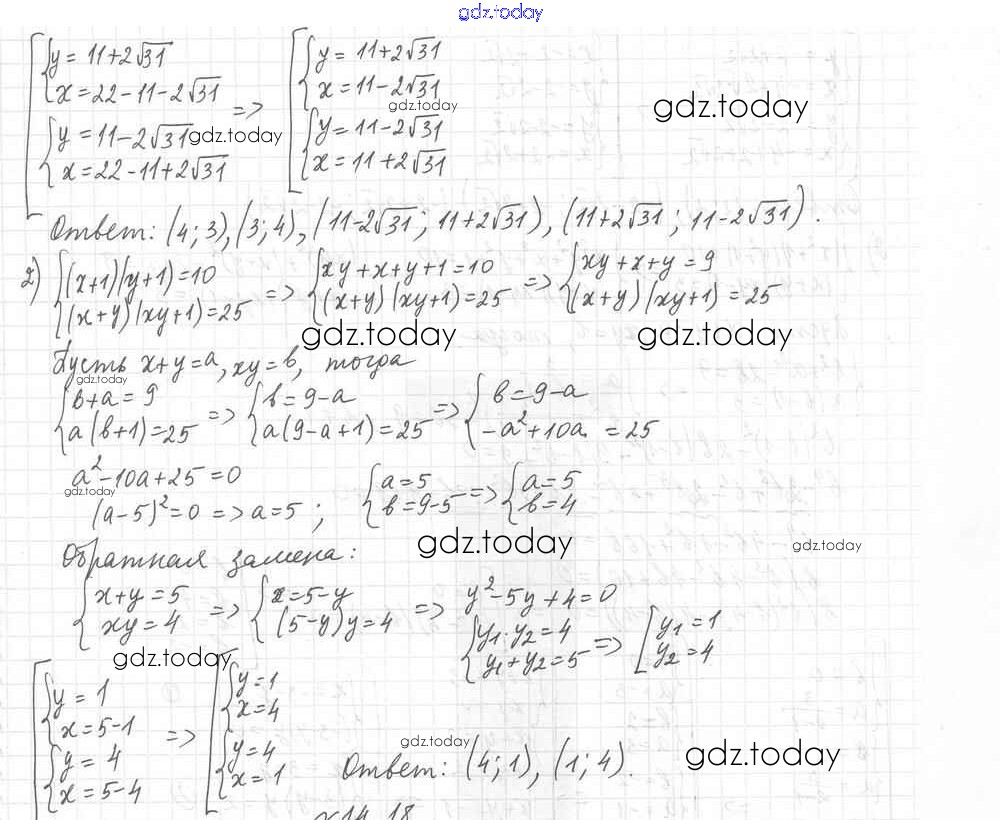 gdz.today
[ { y = 11+2√31 { x = 22-11-2√31 { y = 11-2√31 { x = 22-11+2√31 => [ { y = 11+2√31 { x = 11-2√31 { y = 11-2√31 { x = 11+2√31
gdz.today
gdz.today
gdz.today
Ответ: (4; 3), (3; 4), (11-2√31; 11+2√31), (11+2√31; 11-2√31).
2) { (x+1)(y+1)=10 { (x+y)(xy+1)=25 => { xy+x+y+1=10 { (x+y)(xy+1)=25 => { xy+x+y=9 { (x+y)(xy+1)=25
gdz.today
gdz.today
Пусть x+y=a, xy=b, тогда
gdz.today
{ b+a=9 { a(b+1)=25 => { b=9-a { a(9-a+1)=25 => { b=9-a { -a²+10a =25
a²-10a+25=0
gdz.today
(a-5)²=0 => a=5; { a=5 { b=9-5 => { a=5 { b=4
gdz.today
gdz.today
Обратная замена:
{ x+y=5 { xy=4 => { x=5-y { (5-y)y=4 => y²-5y+4=0
{ y₁·y₂=4 { y₁+y₂=5 => [ y₁=1 y₂=4
gdz.today
[ { y=1 { x=5-1 { y=4 { x=5-4 => [ { y=1 { x=4 { y=4 { x=1
gdz.today
gdz.today
Ответ: (4; 1), (1; 4).
14.18